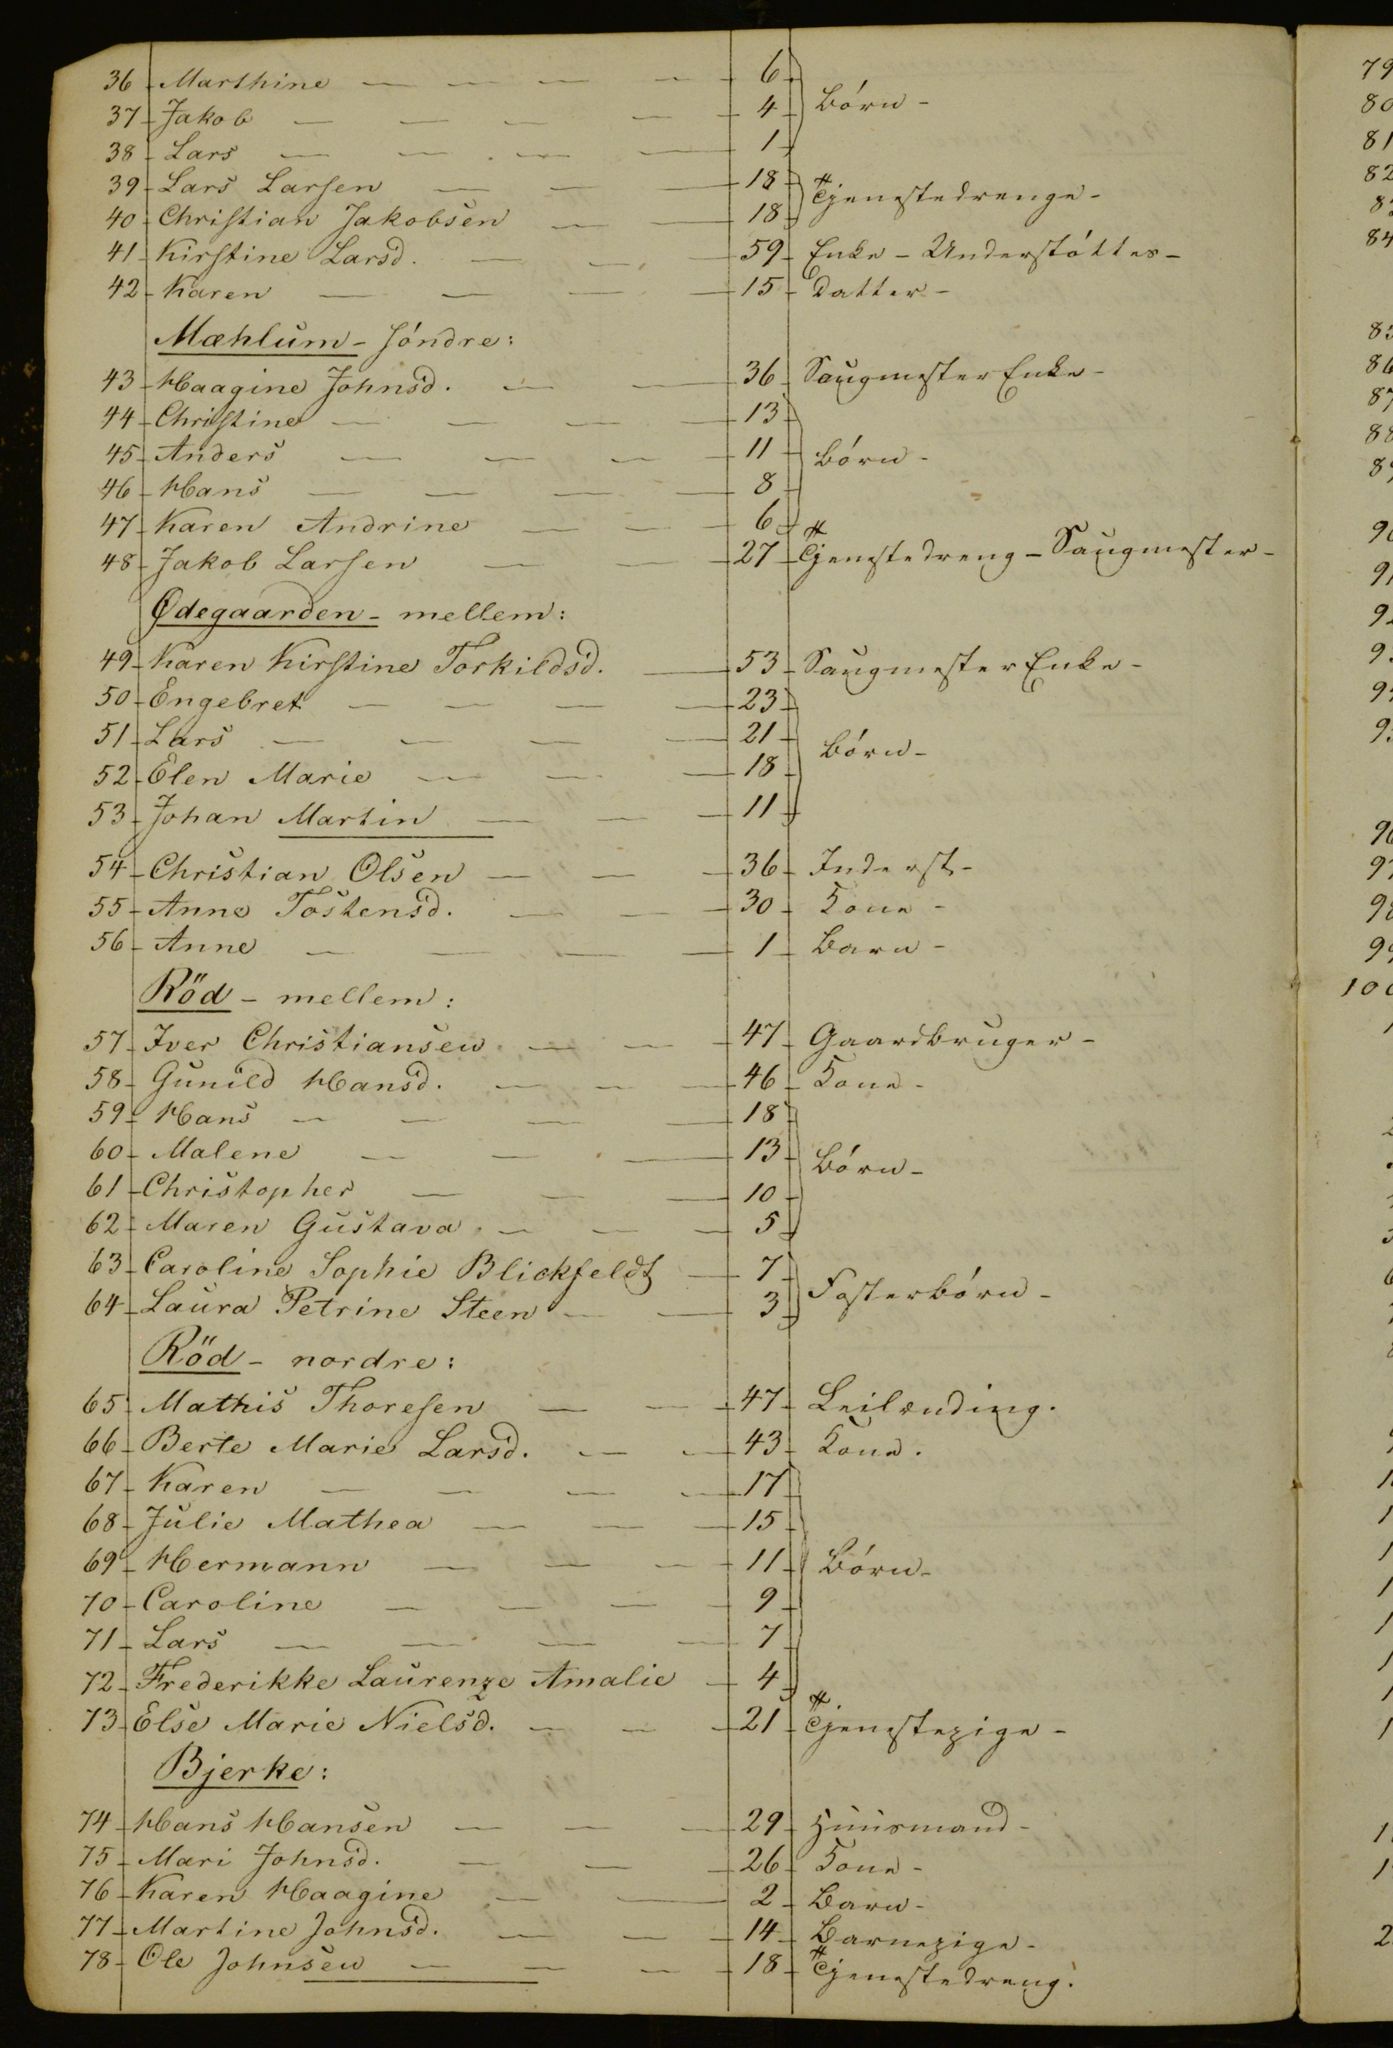 36 Marthine — — — — 6
37 Jakob — — — — 4 Börn -
38 Lars — — — — 1
39 Lars Larsen — — — 18 Tjenestedrenge -
40 Christian Jakobsen — — 18
41 Kirstine Larsd. — — — 59 Enke - Understöttes -
42 Karen — — — — 15 Datter -
Mæhlum - söndre:
43 Haagine Johnsd. — — 36 Saugmester Enke -
44 Christine — — — — 13
45 Anders — — — 11 Börn -
46 Hans — — — — 8
47 Karen Andrine — — — 6
48 Jakob Larsen — — 27 Tjenestedreng - Saugmester -
Ødegaarden - mellem:
49 Karen Kirstine Torkildsd. — 53 Saugmester Enke -
50 Engebret — — — — 23
51 Lars — — — — 21 Börn -
52 Elen Marie — — — 18
53 Johan Martin — — — 11
54 Christian Olsen — — — 36 Inderst -
55 Anne Tostensd. — — 30 Kone -
56 Anne — — — — 1 Barn -
Röd - mellem:
57 Iver Christiansen — — 47 Gaardbruger -
58 Gunild Hansd. — — — 46 Kone -
59 Hans — — — — 18
60 Malene — — — 13 Börn -
61 Christopher — — — 10
62 Maren Gustava — — — 5
63 Caroline Sophie Blickfeldt — 7
64 Laura Petrine Steen — — 3 Fosterbörn -
Röd - nordre:
65 Mathis Thoresen — — 47 Leilænding.
66 Berte Marie Larsd. — — 43 Kone.
67 Karen — — — — 17
68 Julie Mathea — — — 15
69 Hermann — — — 11 Börn -
70 Caroline — — — — 9
71 Lars — — — — 7
72 Frederikke Laurenze Amalie — 4
73 Else Marie Nielsd. — — 21 Tjenestepige -
Bjerke:
74 Hans Hansen — — — 29 Huusmand -
75 Mari Johnsd. — — — 26 Kone -
76 Karen Haagine — — 2 Barn -
77 Martine Johnsd. — — — 14 Barnepige -
78 Ole Johnsen — — — 18 Tjenestedreng.
79
80
81
82
84
86
87
88